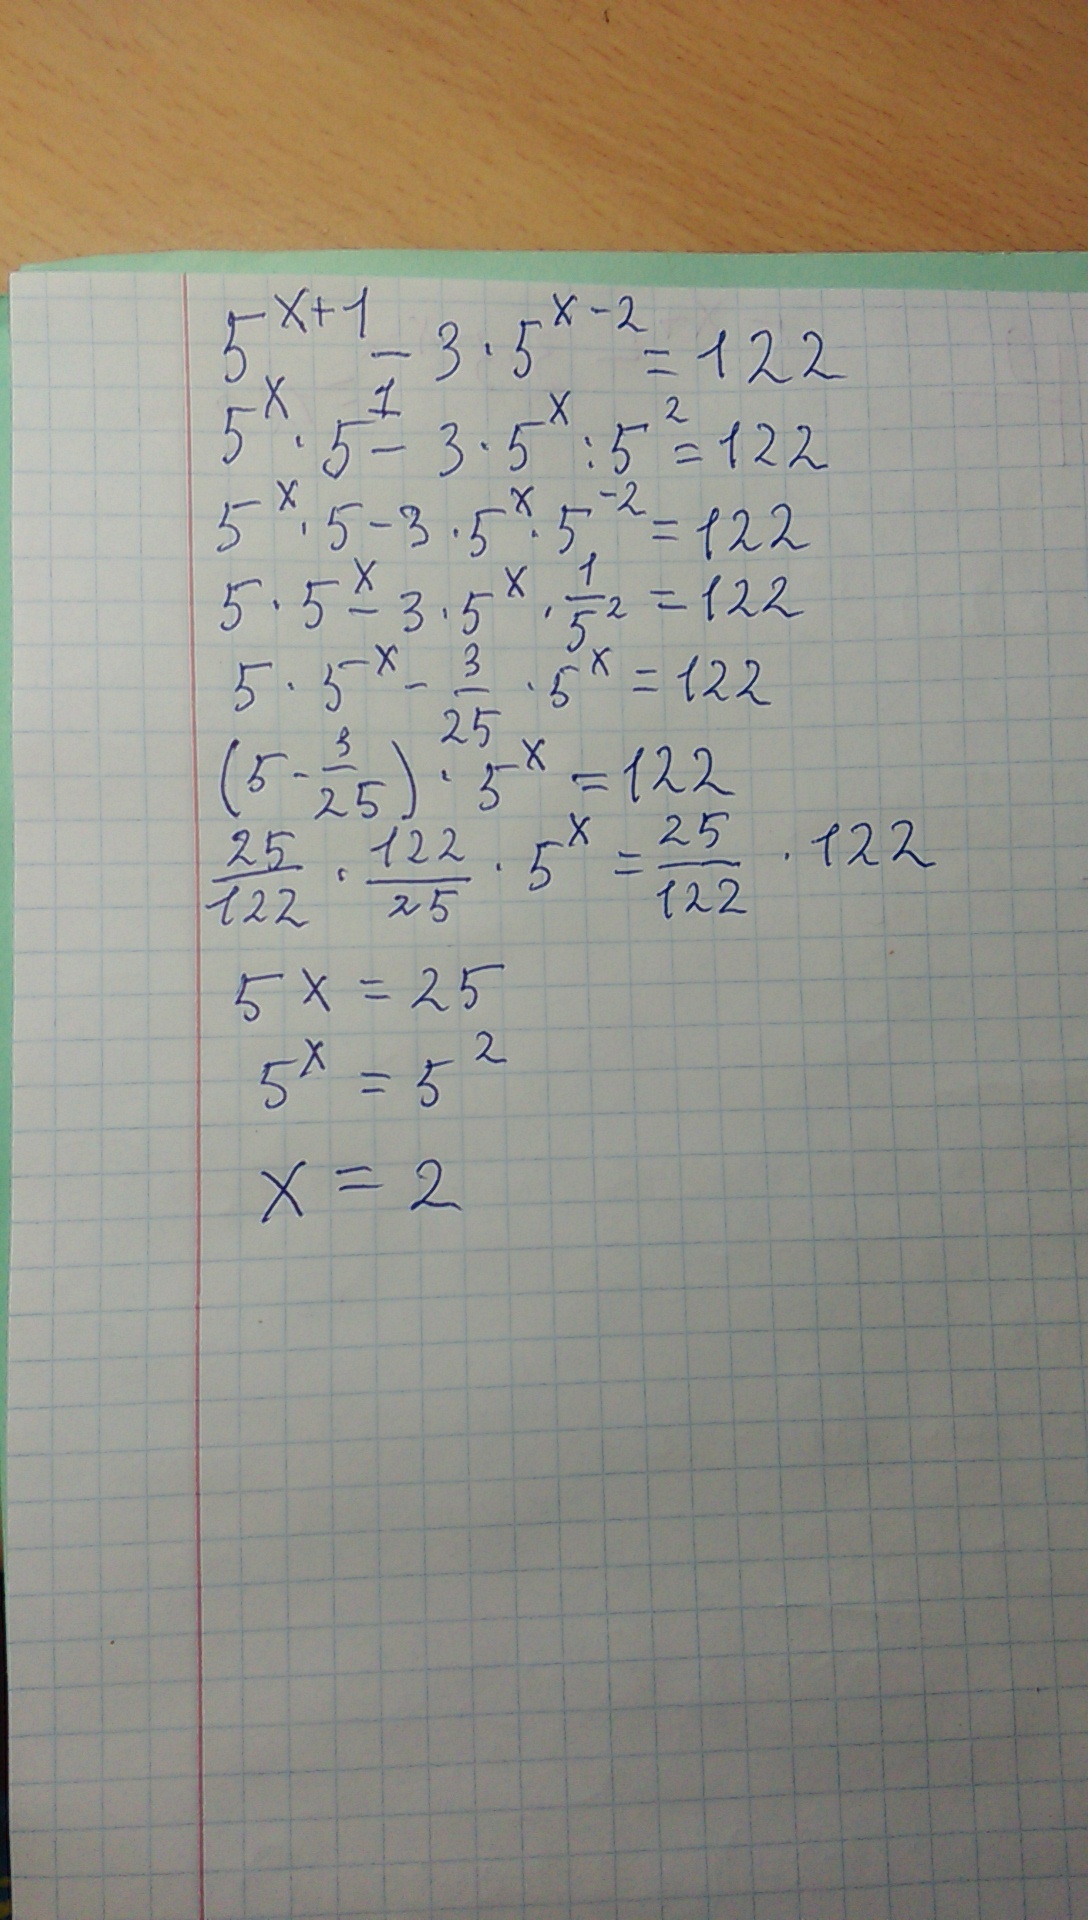 5^{x+1} - 3 · 5^{x-2} = 122
5^x · 5^1 - 3 · 5^x : 5^2 = 122
5^x · 5 - 3 · 5^x · 5^{-2} = 122
5 · 5^x - 3 · 5^x · \frac{1}{5^2} = 122
5 · 5^x - \frac{3}{25} · 5^x = 122
(5 - \frac{3}{25}) · 5^x = 122
\frac{25}{122} · \frac{122}{25} · 5^x = \frac{25}{122} · 122
5x = 25
5^x = 5^2
x = 2